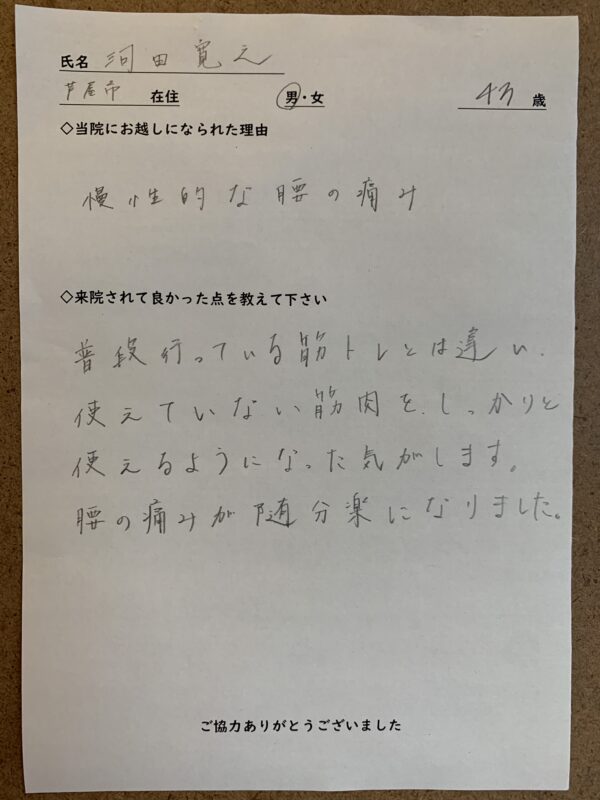 氏名 河田寛之
芦屋市 在住 男・女 43 歳
◇当院にお越しになられた理由
慢性的な腰の痛み
◇来院されて良かった点を教えて下さい
普段行っている筋トレとは違い、
使えていない筋肉を、しっかりと
使えるようになった気がします。
腰の痛みが随分楽になりました。
ご協力ありがとうございました